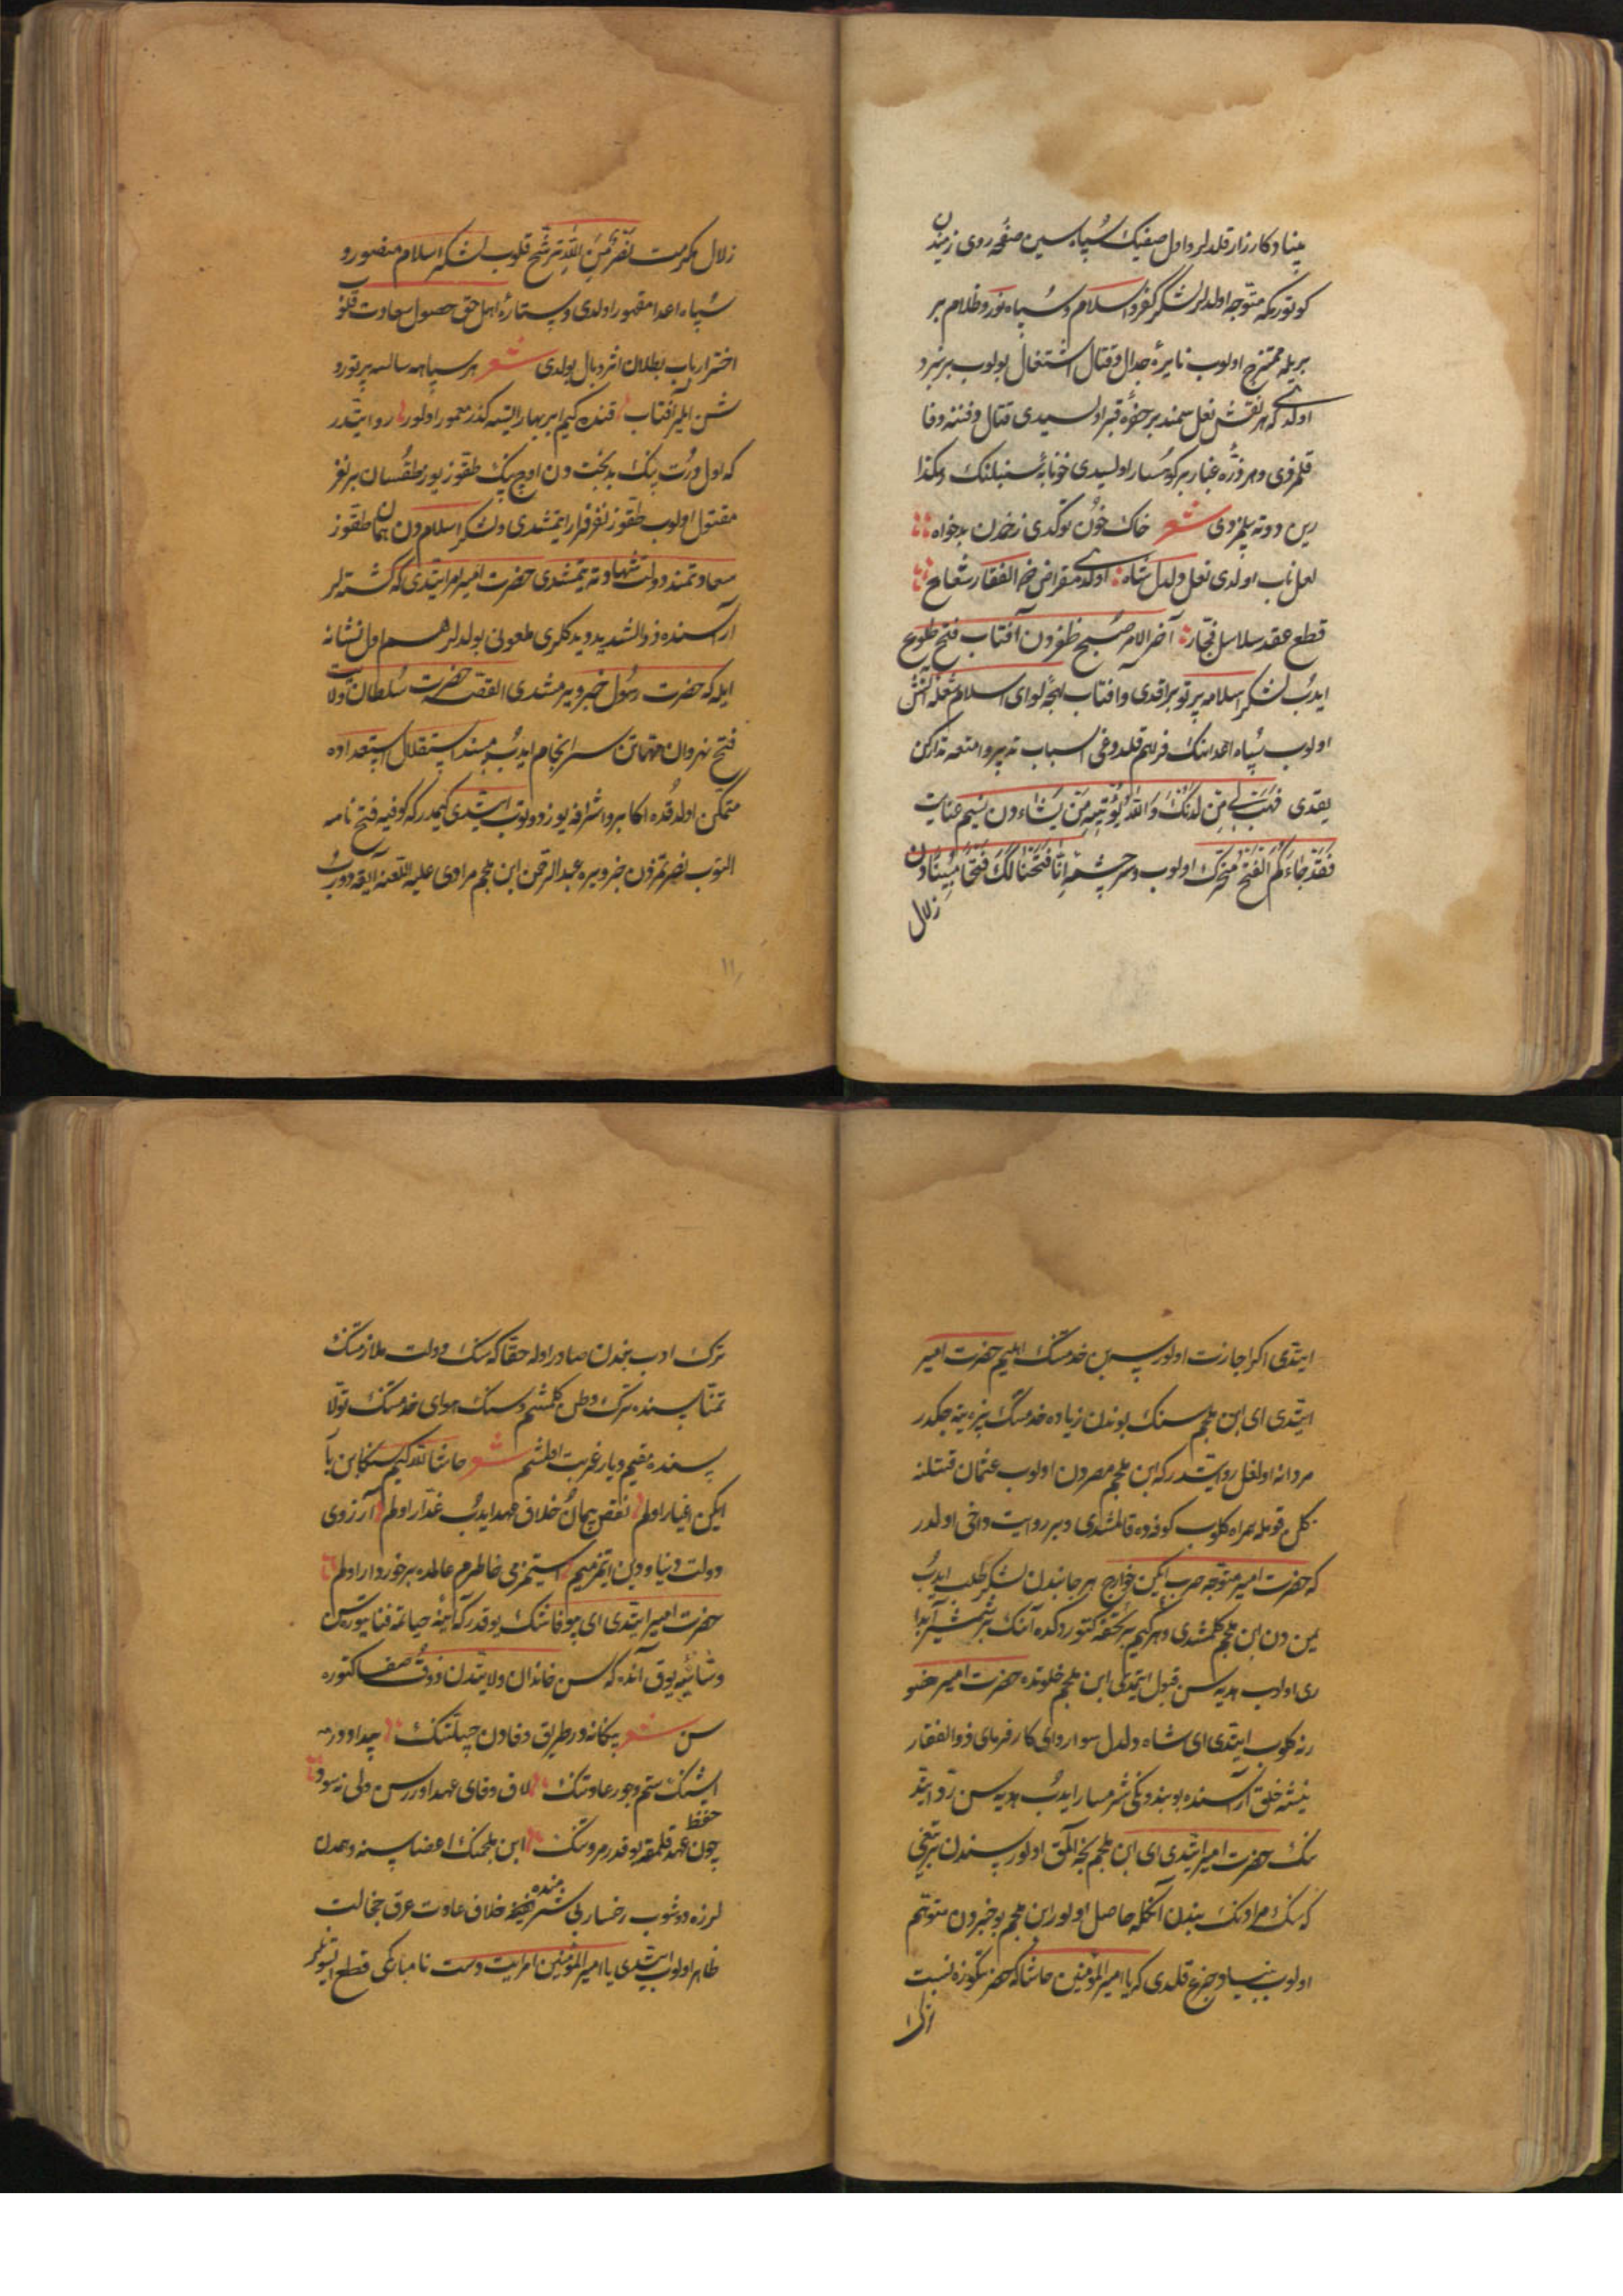 بنیاد کارزار قلدلر و اول صفینك سپاه سین صفحه روی زمیندن
کوتوردیکه متوجه اولدلر لشکر کفر و اسلام و سپاه نور و ظلام بر
بریله ممتزج اولوب نایرهٔ جدال و قتال اشتغال بولوب بر نبرد
اولدی که هر نقش نعل سمند بر حفرهٔ قبر اولسیدی قتال و فتنه وفا
قلمزدی و هر ذرّه غبار بر کوهسار اولسیدی خونابه
رین دوته بیلمزدی شعر خاك خون توکدی زخمدن بدخواه
لعل ناب اولدی نعل دلدل شاه اولدی مقراض خم الفقار شعاع
قطع عقد سلاسل فجار آخر الامر صبح ظفردن آفتاب فتح طلوع
ایدُب لشکر اسلامه پرتو براقدی و افتاب لوای اسلام شعله آتش
اولوب سپاه اعدانك قلدوغی اسباب تدبیر و امتعه تدارکن
یقدی فَهَبْ لِی مِنْ لَدُنْكَ وَاللّٰهُ یُؤتِیهِ مَنْ یَشَاء دن نسیم عنایت
فَقَدْ جَاءَكُمُ الْفَتْحُ متحرك اولوب و سرچشمه اِنَّا فَتَحْنَا لَكَ فَتْحًا مُبِینًا دن
زلال
زلال مکرمت نَصْرٌ مِنَ اللّٰهِ ترشّح قلوب لشکر اسلام منصور و
سپاه اعدا مقهور اولدی و ستارهٔ اهل حق حصول سعادت قلو
اختر ارباب بطلان اثر وبال بولدی شعر هر سپاهه سالسه پرتو رو
شن ایلر آفتاب قنده کیم ابر بهار ایتسه کذر معمور اولور روایتدر
که اول دورت بیك بدبخت دن اوچ بیك طقوز یوز طقسان بر نفر
مقتول اولوب طقوز نفر فرار ایتمشدی و لشکر اسلام دن همان طقوز
سعادتمند دولت شهادته یتمشدی حضرت امیر امر ایتدی که کشته لر
آراسنده ذو الثدیه دیدکلری ملعونی بولدلر هم اول نشانه
ایله که حضرت رسول خبر ویرمشدی القصّه حضرت سلطان ولایت
فتح نهروان مهمّاتن سرانجام ایدُب مسند استقلال استعداده
متمکن اولدقده اکابر و اشرافه یوز دوتوب ایتدی کیمدر که کوفیه فتح نامه
التوب نصرتمزدن خبر ویره عبد الرحمن ابن ملجم مرادی علیه اللعنه ایاغه دوروب
ایتدی اکر اجازت اولورسه بن خدمتك ایلیم حضرت امیر
ایتدی ای ابن ملجم سنك بوندن زیاده خدمتك بزه یتجکدر
مردانه اولغل روایتدر که ابن ملجم مصردن اولوب عثمان قتلنه
کلن قومله همراه کلوب کوفه ده قالمشدی و بر روایت داخی اولدر
که حضرت امیر متوجه حرب ایکن خوارج هر جانبدن لشکر طلب ایدُب
یمن دن ابن ملجم کلمشدی و هر کیم بر تحفه کتوردکده آنك بر شمشیر آبدا
ری اولوب هدیه سن قبول ایتمدی ابن ملجم خلوتده حضرت امیر حضو
رنه کلوب ایتدی ای شاه دلدل سوار و ای کارفرمای ذو الفقار
نیشه خلق آراسنده بو بنده ونکی شرمسار ایدُب هدیه سن رد ایتد
نك حضرت امیر ایتدی ای ابن ملجم نجه المق اولور سندن بر تیغی
که سنك مرادنك بندن آنکله حاصل اولور ابن ملجم بو خبردن متوهم
اولوب بنیاد جزع قلدی که یا امیر المؤمنین حاشا که حضرتکوزه نسبت
ترك ادب بندن صادر اوله حقّا که سنك دولت ملازمتنك
تمنّاسنده ترك وطن کلمشم و سنك هوای خدمتنك تولّا
سنده مقیم دیار غربت اولمشم شعر حاشا للّه کیم سنکا بن یار
ایکن اغیار اولم نقض پیمان خلاف عهد ایدُب غدّار اولم آرزوی
دولت دنیا و دین ایتمز میم استمز می خاطرم عالمده برخوردار اولم
حضرت امیر ایتدی ای بی وفا شك یوقدر که آینهٔ حیاته فنا یتورسن
و شائبه یوق آنده که سن خاندان ولایتدن ذوق صفا کتوره
سن شعر بیکانه در طریق وفادن جبلتنك پیدا دورر
ایشنك ستم و جور عادتنك لاف وفای عهد اوررسن ولی نه سود
چون حفظ عهد قلمقه یوقدر مروتنك ابن ملجمنك اعضاسنه وهمدن
لرزه دوشوب رخساره بی شرمنده خلاف عادت عرق خجالت
ظاهر اولوب ایتدی یا امیر المؤمنین امر ایت دست نامبارکمی قطع ایتسونلر